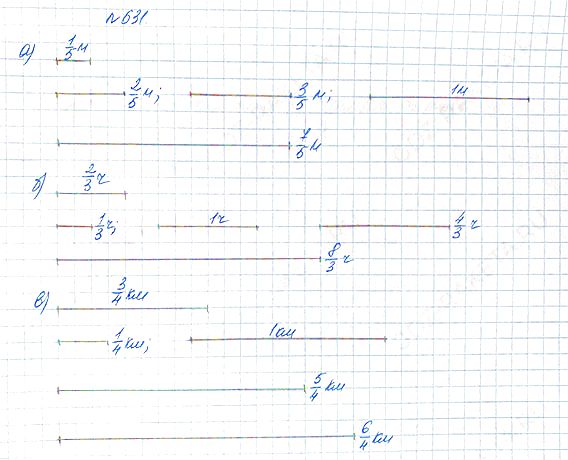 № 631
а) 1/5 м
2/5 м; 3/5 м; 1м
7/5 м
б) 2/3 ч
1/3 ч; 1ч 4/3 ч
8/3 ч
в) 3/4 км
1/4 км; 1км
5/4 км
6/4 км